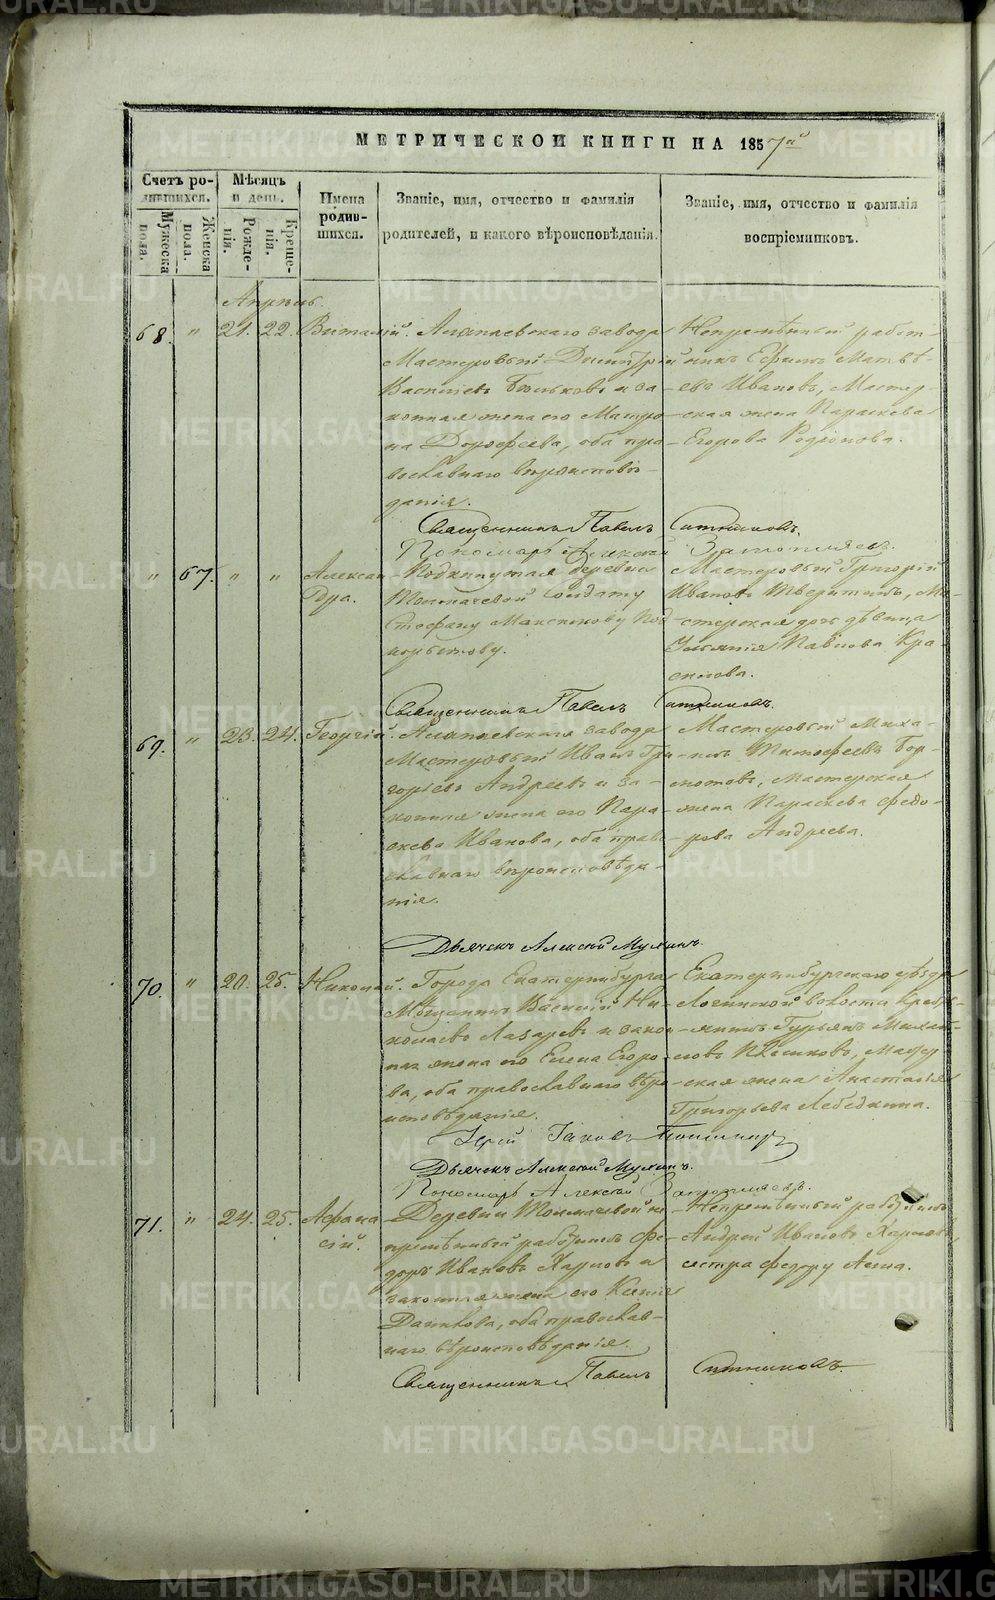 МЕТРИЧЕСКОЙ КНИГИ НА 1857й
Счетъ родившихся.
Мужеска пола.
Женска пола.
Мѣсяцъ и день.
Рожденія.
Крещенія.
Имена родившихся.
Званіе, имя, отчество и фамилія
родителей, и какого вѣроисповѣданія.
Званіе, имя, отчество и фамилія
воспріемниковъ.
Апрѣль.
68. " 21. 22. Виталій.
Алапаевскаго завода
Мастеровый Димитрій
Васильевъ Бѣльковъ и за-
конная жена его Матро-
на Дорофеева, оба пра-
вославнаго вѣроисповѣ-
данія.
Непремѣнный работ-
никъ Ефимъ Матвѣ-
евъ Ивановъ, Мастер-
ская жена Параскева
Егорова Родіонова.
Священникъ Павелъ Ситниковъ.
Пономарь Алексій
" 67. " " Алексан-
дра.
Подкинутая деревни
Толмачевой солдату
Стефану Максимову Под-
корытову.
Мастеровый Григорій
Ивановъ Тверитинъ, Ма-
стерская дочь дѣвица
Павлова Кра-
силова.
Священникъ Павелъ Ситниковъ.
69. " 23. 24. Георгій.
Алапаевскаго завода
Мастеровый Иванъ Гри-
горьевъ Андреевъ и за-
конная жена его Пара-
скева Иванова, оба право-
славнаго вѣроисповѣда-
нія.
Мастеровый Миха-
илъ Тимофеевъ
Мастерская
жена Параскева Федо-
рова Андреева.
Дьячекъ Алексій Мухинъ.
70. " 20. 25. Николай.
Города Екатеринбурга
Мѣщанинъ Василій Ни-
колаевъ Лазаревъ и закон-
ная жена его Елена Егоро-
ва, оба православнаго вѣро-
исповѣданія.
Екатеринбургскаго уѣзда
волости Кресть-
янинъ Гурьянъ
Плешковъ, Мастер-
ская жена Анастасія
Григорьева Лебедкина.
Іерей Іаковъ
Дьячекъ Алексій Мухинъ.
Пономарь Алексій
71. " 24. 25. Афана-
сій.
Деревни Толмачевой не-
премѣнный работникъ Фе-
доръ Ивановъ Харловъ и
законная жена его Ксенія
Данилова, оба православ-
наго вѣроисповѣданія.
Непремѣнный работникъ
Андрей Ивановъ Харловъ,
сестра Федору Анна.
Священникъ Павелъ Ситниковъ
METRIKI.GASO-URAL.RU